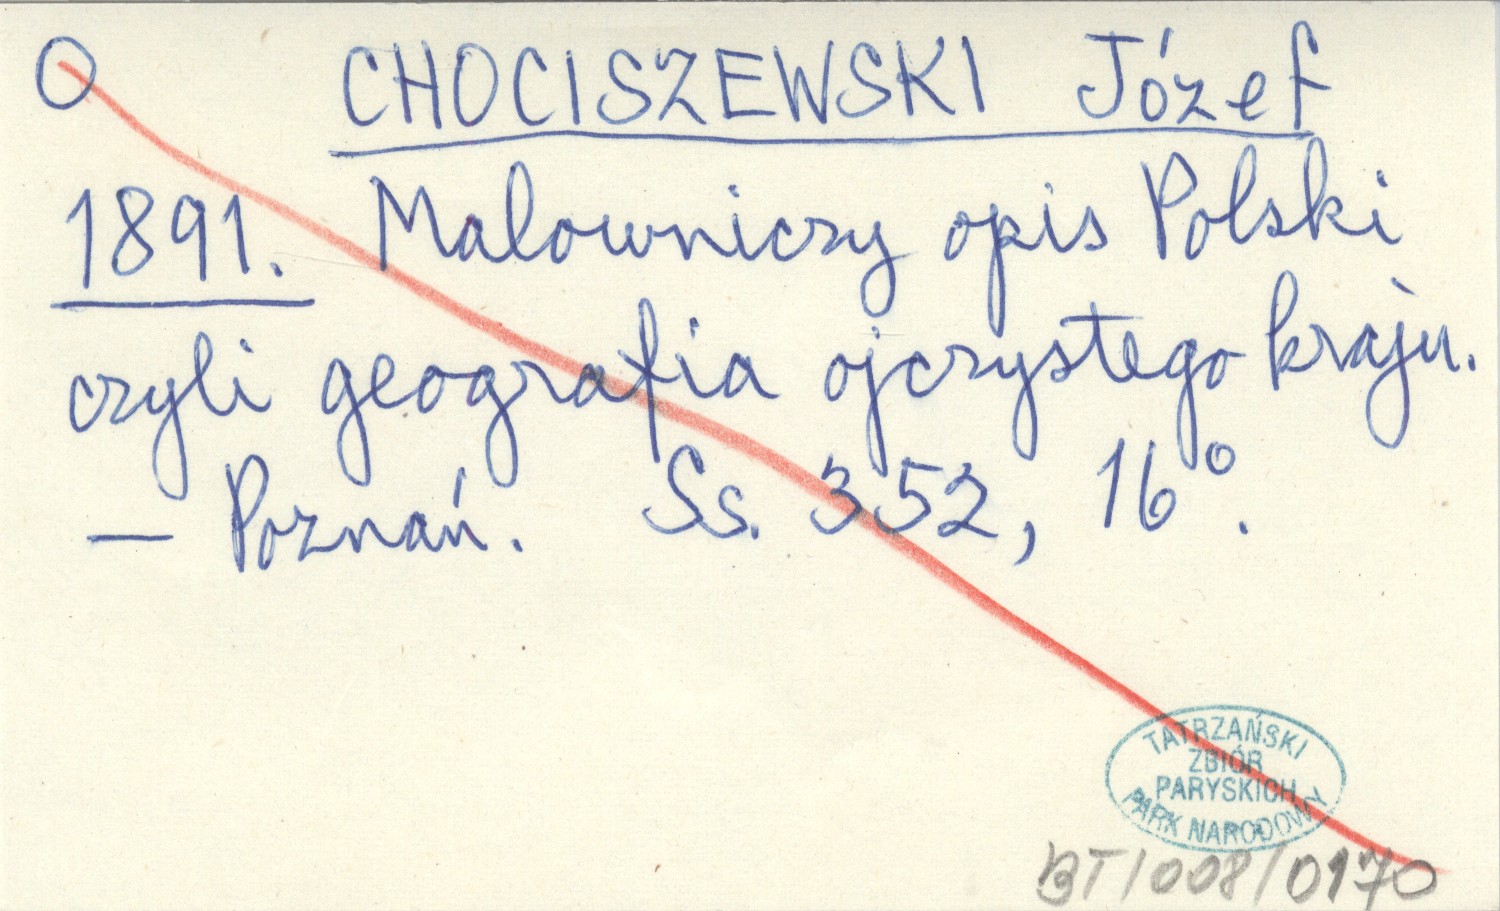 O CHOCISZEWSKI Józef
1891. Malowniczy opis Polski
czyli geografia ojczystego kraju.
— Poznań. Ss. 352, 16°.
TATRZAŃSKI
ZBIÓR
PARYSKICH
PARK NARODOWY
BT/008/0170